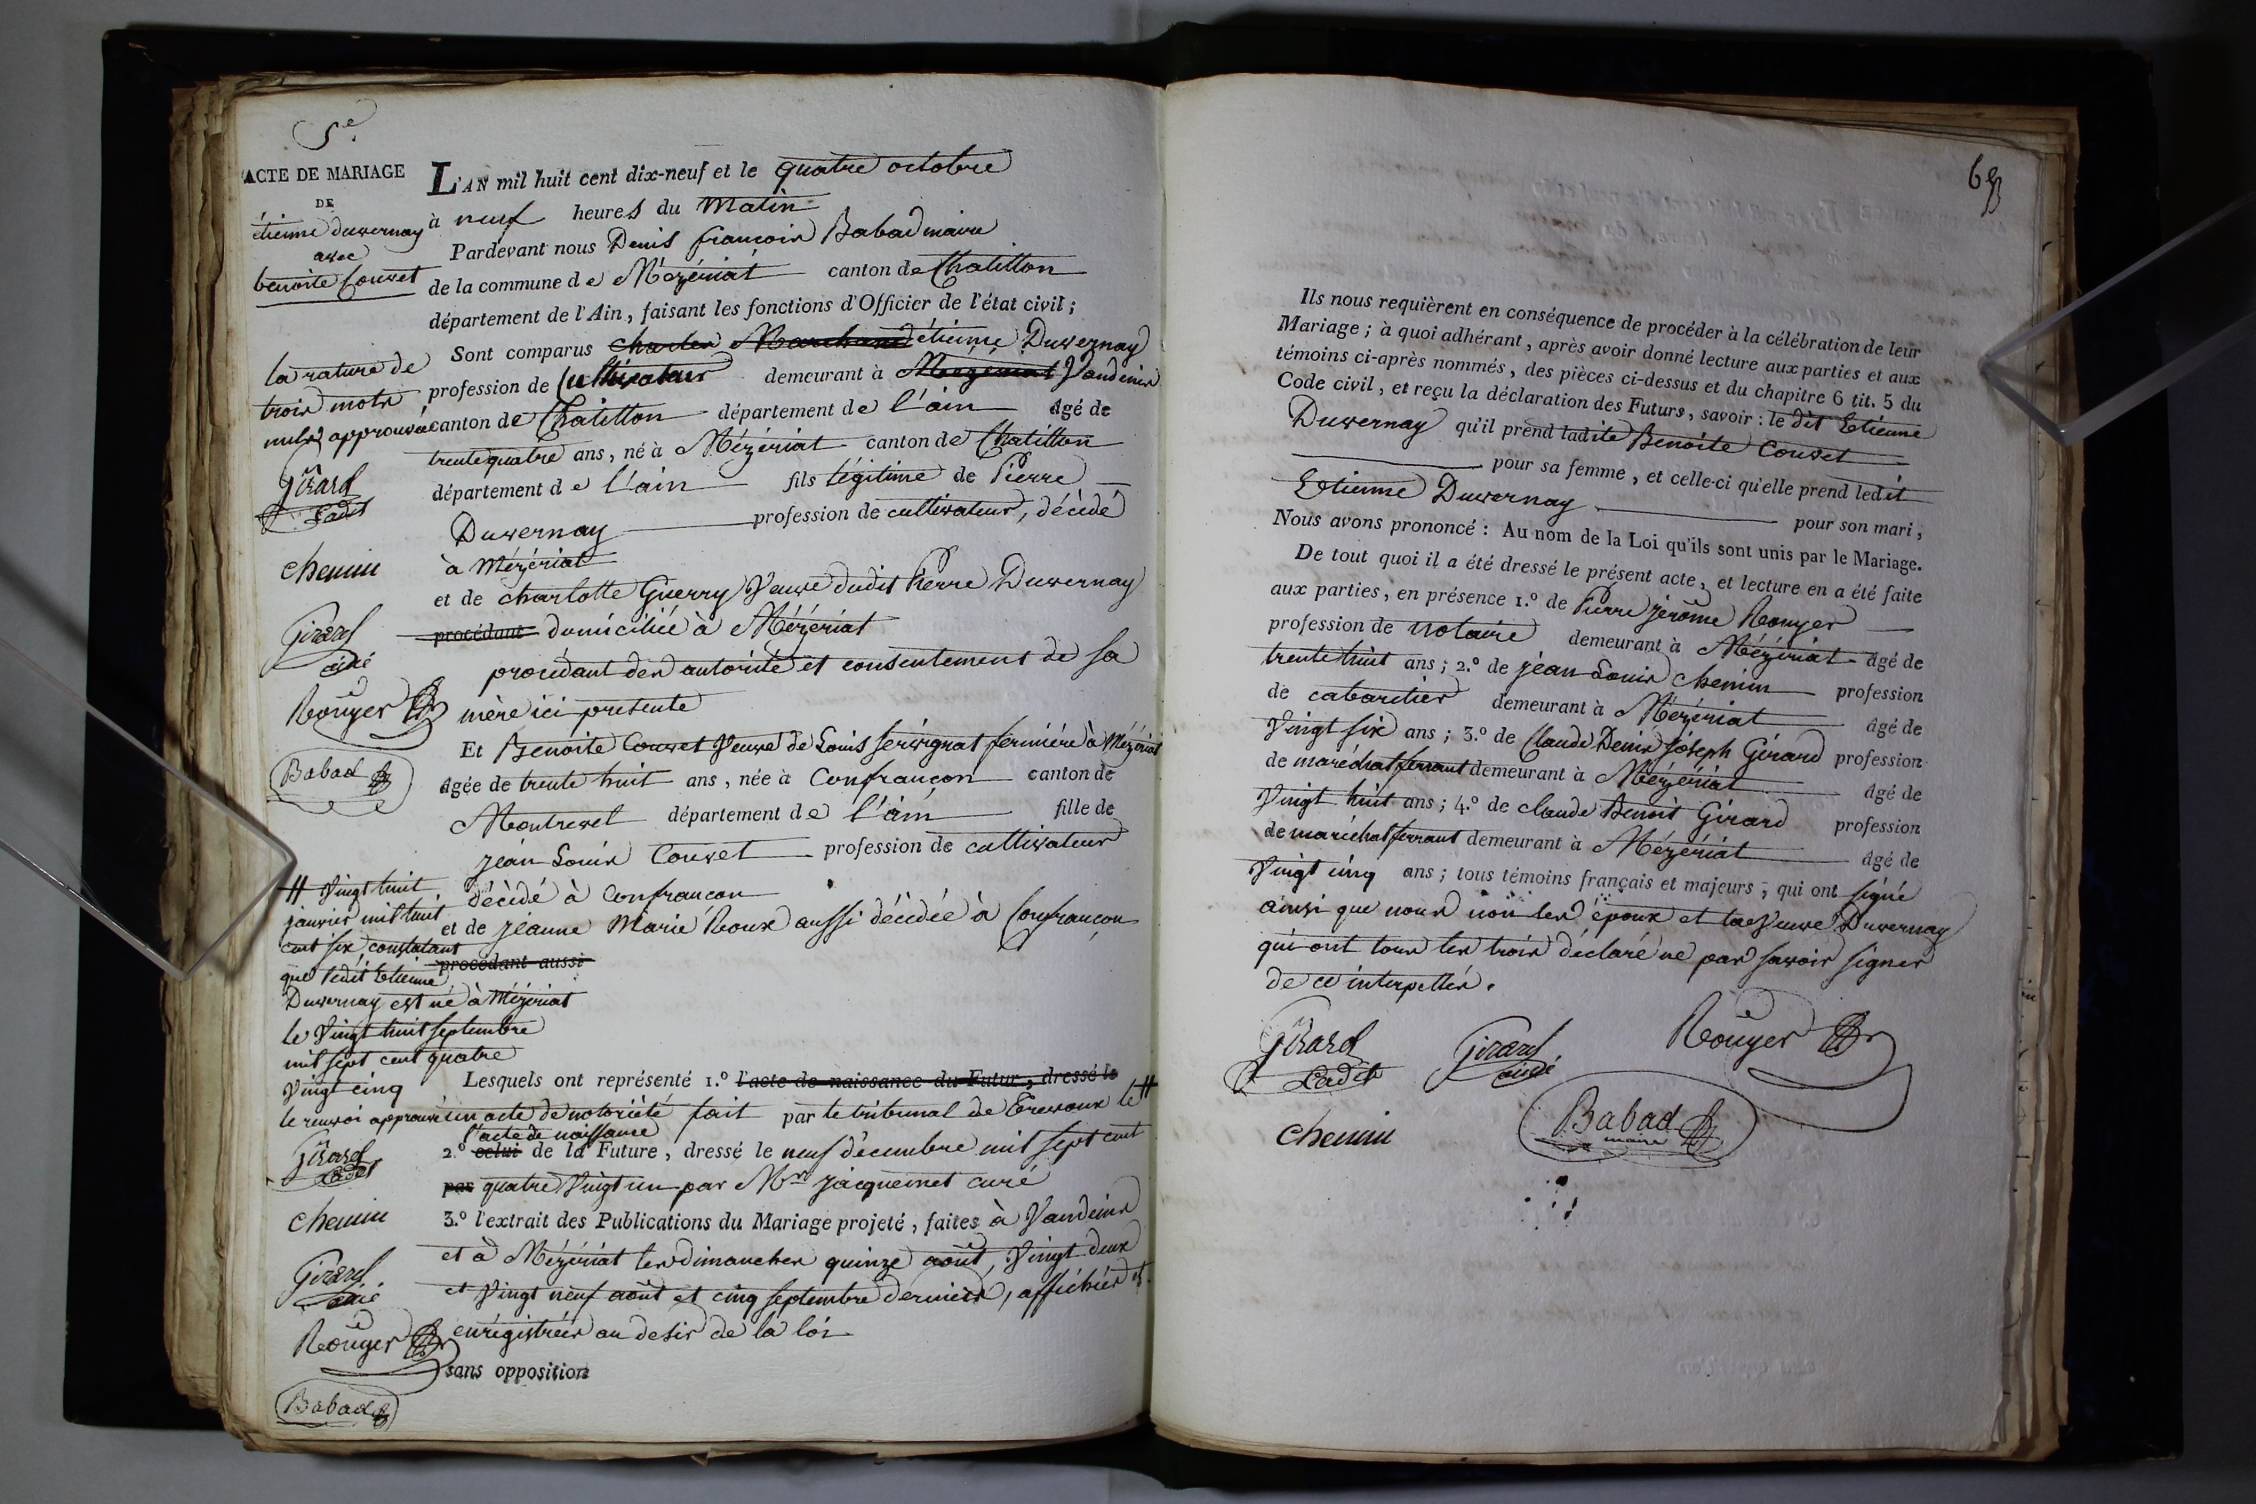 5e.
ACTE DE MARIAGE
DE
étienne duvernay
avec
benoite Couvet
la rature de
trois mots
nuls approuvée
Girard
Cadet
chemin
Girard
ainé
Rouyer
Babad
L'AN mil huit cent dix-neuf et le quatre octobre
à neuf heures du matin
Pardevant nous Denis françois Babad maire
de la commune de Mézériat canton de Chatillon
département de l'Ain, faisant les fonctions d'Officier de l'état civil;
Sont comparus charles Marchand étienne Duvernay
profession de Cultivateur demeurant à Mézériat Vandeins
canton de Chatillon département de l'ain âgé de
trente quatre ans, né à Mézériat canton de Chatillon
département de l'ain fils légitime de Pierre
Duvernay profession de cultivateur, décédé
à Mézériat
et de charlotte Guerry Veuve dudit Pierre Duvernay
procédant domiciliée à Mézériat
procédant des autorité et consentement de sa
mère ici presente
Et Benoite Couvet Veuve de Louis Servignat fermière à Mézériat
âgée de trente huit ans, née à Confrançon canton de
Montrevel département de l'ain fille de
jean Louis Couvet profession de cultivateur
décédé à Confrancon
et de jéanne Marie Roux aussi décédée à Confrançon
procédant aussi
# Vingt huit
janvier mil huit
cent six, constatant
que ledit Etienne
Duvernay est né à Mézériat
le Vingt huit septembre
mil sept cent quatre
Vingt cinq
le renvoi approuvé
Girard
Cadet
chemin
Girard
ainé
Rouyer
Babad
Lesquels ont représenté 1.º l'acte de naissance du Futur, dressé le
un acte de notoriété fait par le tribunal de Trevoux le #
l'acte de naissance
2.º celui de la Future, dressé le neuf décembre mil sept cent
par quatre Vingt un par Mr jacquemet curé
3.º l'extrait des Publications du Mariage projeté, faites à Vandeins
et à Mézériat les dimanches quinze août, Vingt deux
et Vingt neuf août et cinq septembre derniers, affichées et
enrégistrées au desir de la loi
sans opposition
Ils nous requièrent en conséquence de procéder à la célébration de leur
Mariage; à quoi adhérant, après avoir donné lecture aux parties et aux
témoins ci-après nommés, des pièces ci-dessus et du chapitre 6 tit. 5 du
Code civil, et reçu la déclaration des Futurs, savoir: le dit Etienne
Duvernay qu'il prend ladite Benoite Couvet
pour sa femme, et celle-ci qu'elle prend ledit
Etienne Duvernay pour son mari,
Nous avons prononcé: Au nom de la Loi qu'ils sont unis par le Mariage.
De tout quoi il a été dressé le présent acte, et lecture en a été faite
aux parties, en présence 1.º de Pierre jérôme Rouyer
profession de notaire demeurant à Mézériat âgé de
trente huit ans; 2.º de jéan Louis chemin profession
de cabaretier demeurant à Mézériat âgé de
Vingt six ans; 3.º de Claude Denis joseph Girard profession
de maréchal ferrant demeurant à Mézériat âgé de
Vingt huit ans; 4.º de claude Benoit Girard profession
de maréchal ferrant demeurant à Mézériat âgé de
Vingt cinq ans; tous témoins français et majeurs, qui ont signé
ainsi que nous non les époux et la Veuve Duvernay
qui ont tous les trois déclaré ne pas savoir signer
de ce interpellés.
Girard
Cadet
Girard
ainé
Rouyer
chemin
Babad
maire